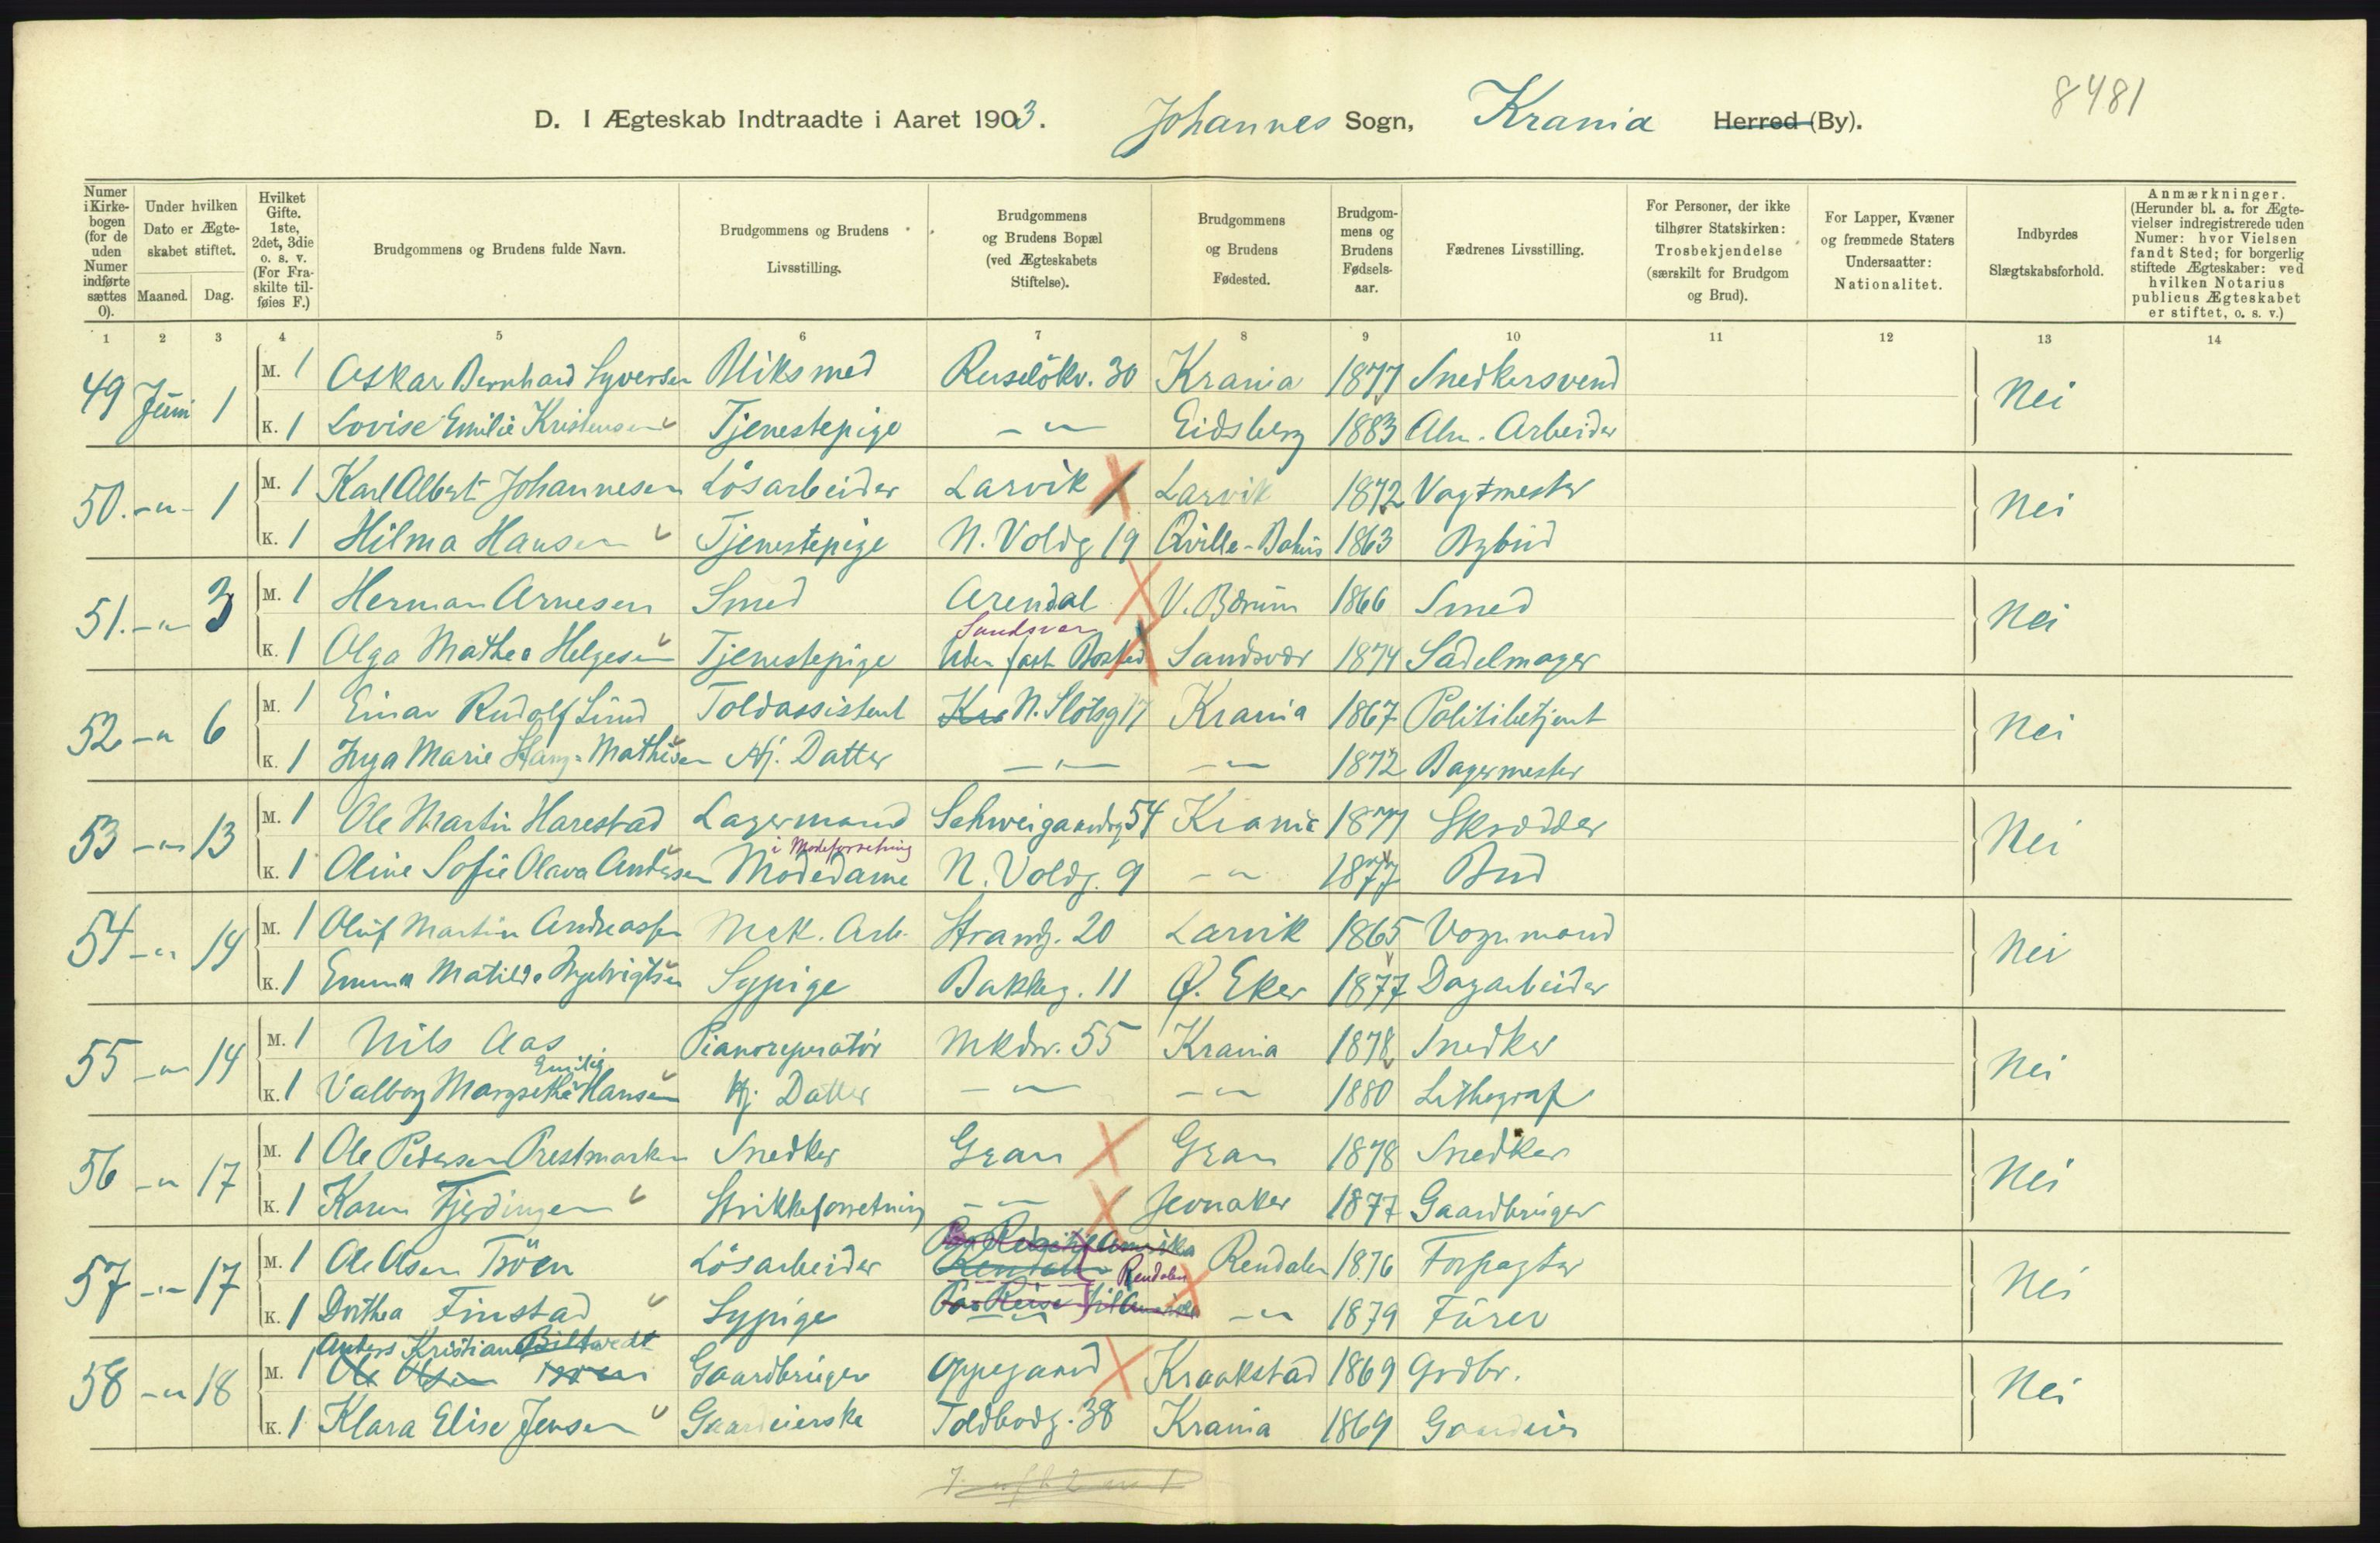 8481
D. I Ægteskab Indtraadte i Aaret 1903. Johannes Sogn, Krania Herred (By).
Numer i Kirkebogen (for de uden Numer indførte sættes 0). Under hvilken Dato er Ægteskabet stiftet. Maaned. Dag. Hvilket Gifte. 1ste, 2det, 3die o. s. v. (For Fraskilte tilføies F.) Brudgommens og Brudens fulde Navn. Brudgommens og Brudens Livsstilling. Brudgommens og Brudens Bopæl (ved Ægteskabets Stiftelse). Brudgommens og Brudens Fødested. Brudgommens og Brudens Fødselsaar. Fædrenes Livsstilling. For Personer, der ikke tilhører Statskirken: Trosbekjendelse (særskilt for Brudgom og Brud). For Lapper, Kvæner og fremmede Staters Undersaatter: Nationalitet. Indbyrdes Slægtskabsforhold. Anmærkninger. (Herunder bl. a. for Ægtevielser indregistrerede uden Numer: hvor Vielsen fandt Sted; for borgerlig stiftede Ægteskaber: ved hvilken Notarius publicus Ægteskabet er stiftet, o. s. v.)
1 2 3 4 5 6 7 8 9 10 11 12 13 14
49 Juni 1 M. 1 Oskar Bernhard Syversen Bliksmed Ruselökv. 30 Krania 1877 Snedkersvend Nei
K. 1 Lovise Emilie Kristensen Tjenestepige - " - Eidsberg 1883 Alm. Arbeider
50. - " - 1 M. 1 Karl Albert Johannesen Lösarbeider Larvik Larvik 1872 Vagtmester Nei
K. 1 Hilma Hansen Tjenestepige N. Voldg 19 Qville-Bohus 1863 Bybud
51. - " - 3 M. 1 Herman Arnesen Smed Arendal V. Bærum 1866 Smed Nei
Sandsvær
K. 1 Olga Mathea Helgesen Tjenestepige Uden fast Bosted Sandsvær 1874 Sadelmager
52 - " 6 M. 1 Einar Rudolf Lund Toldassistent Kra N. Slotsg 17 Krania 1867 Politibetjent Nei
K. 1 Inga Marie Stang-Mathisen Hj. Datter - " - - " - 1872 Bagermester
53 - " 13 M. 1 Ole Martin Harestad Lagermand Schweigaardsg 54 Krania 1877 Skrædder Nei
i Modeforretning
K. 1 Oline Sofie Olava Andersen Modedame N. Voldg. 9 - " - 1877 Bud
54 - " 14 M. 1 Oluf Martin Andreassen Mek. Arb. Strandg. 20 Larvik 1865 Vognmand Nei
K. 1 Emma Matilde Syp­ige Bakkeg. 11 Ø. Eker 1877 Dagarbeider
55 - " 14 M. 1 Nils Aas Pianoreperatör Mkdsv. 55 Krania 1878 Snedker Nei
Emilie
K. 1 Valborg Margrethe Hansen Hj. Datter - " - - " - 1880 Lithograf
56 - " 17 M. 1 Ole Pedersen Prestmarken Snedker Gran Gran 1878 Snedker Nei
K. 1 Karen Fjerdingen Strikkeforretning - " - Jevnaker 1877 Gaardbruger
Paa Reise til Amerika
57 - " 17 M. 1 Ole Olsen Tröen Lösarbeider Rendalen Rendalen Rendalen 1876 Forpagter Nei
K. 1 Dorthea Finstad Sypige Paa Reise til Amerika - " - 1879 Fürer
Anders Kristian Biltvedt
58 - " 18 M. 1 Ole Olsen Tröen Gaardbruger Oppegaard Kraakstad 1869 Grdbr. Nei
K. 1 Klara Elise Jensen Gaardeierske Toldbodg. 38 Krania 1869 Gaardeier